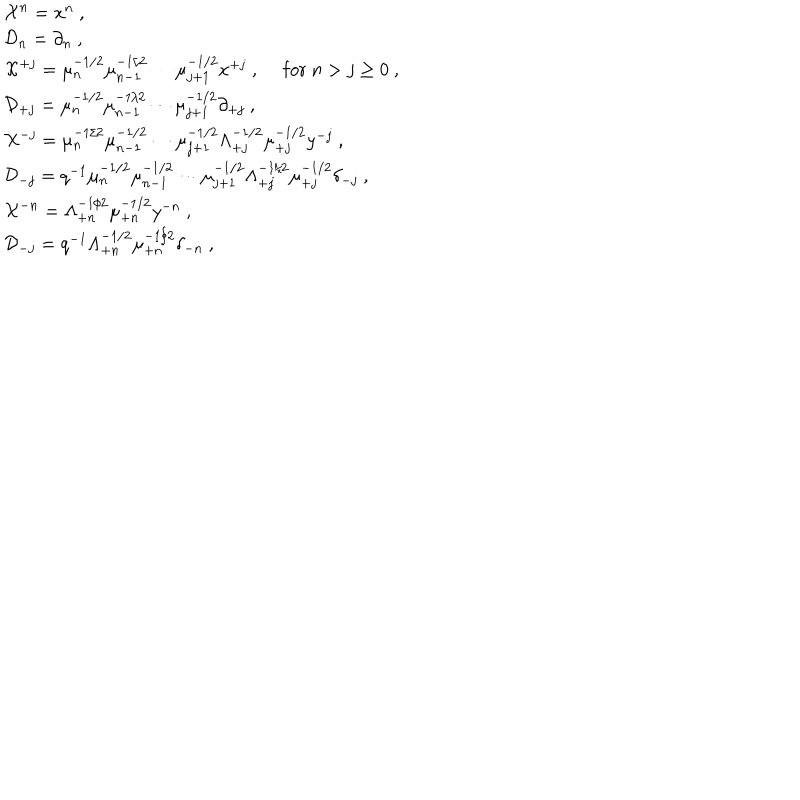 𝒳^n = x^n ,
𝒟_n = ∂_n ,
𝒳^{+j} = μ_n^{-1/2} μ_{n-1}^{-1/2} ··· μ_{j+1}^{-1/2} x^{+j} , for n > j ≥ 0 ,
𝒟_{+j} = μ_n^{-1/2} μ_{n-1}^{-1/2} ··· μ_{j+1}^{-1/2} ∂_{+j} ,
𝒳^{-j} = μ_n^{-1/2} μ_{n-1}^{-1/2} ··· μ_{j+1}^{-1/2} Λ_{+j}^{-1/2} μ_{+j}^{-1/2} y^{-j} ,
𝒟_{-j} = q^{-1} μ_n^{-1/2} μ_{n-1}^{-1/2} ··· μ_{j+1}^{-1/2} Λ_{+j}^{-1/2} μ_{+j}^{-1/2} δ_{-j} ,
𝒳^{-n} = Λ_{+n}^{-1/2} μ_{+n}^{-1/2} y^{-n} ,
𝒟_{-j} = q^{-1} Λ_{+n}^{-1/2} μ_{+n}^{-1/2} δ_{-n} ,